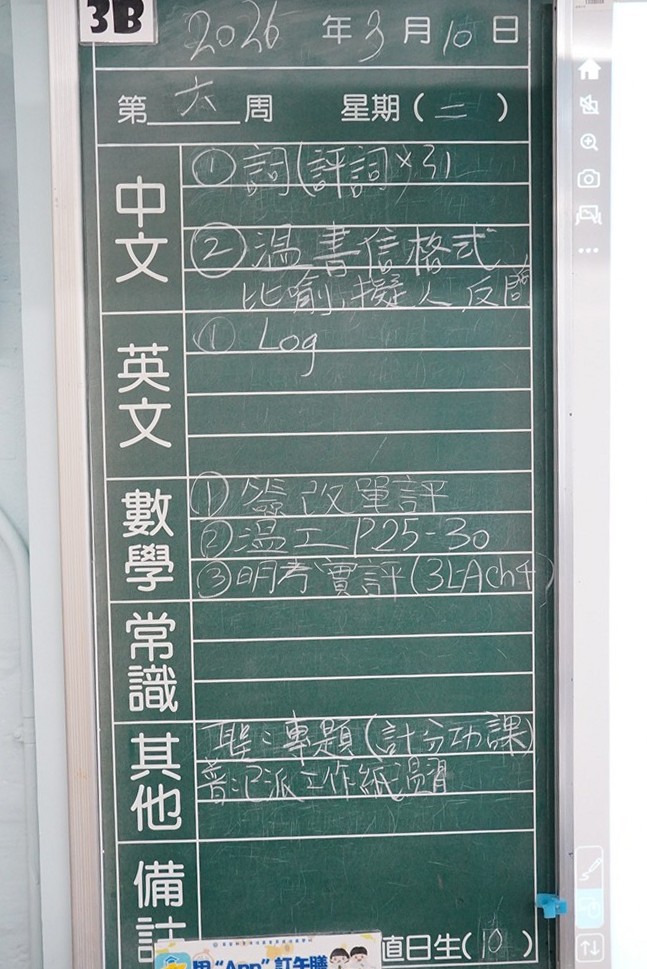 3B
2026年3月10日
第六周 星期(二)
中文
① 詞(評詞×3)
② 温書信格式
比喻,擬人 反問
英文
① Log
數學
① 簽改單評
② 温工 P.25-30
③ 明考實評(3L-A ch4)
常識
其他
聖:專題(計分功課)
普:已派工作紙温習
備註
用“App”訂午膳
直日生(10)